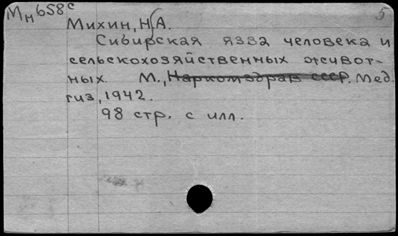 Мн658с
5
Михин, Н.А.
Сибирская язва человека и
сельскохозяйственных живот-
ных. М., Наркомздрав СССР. Мед
гиз, 1942.
98 стр. с илл.